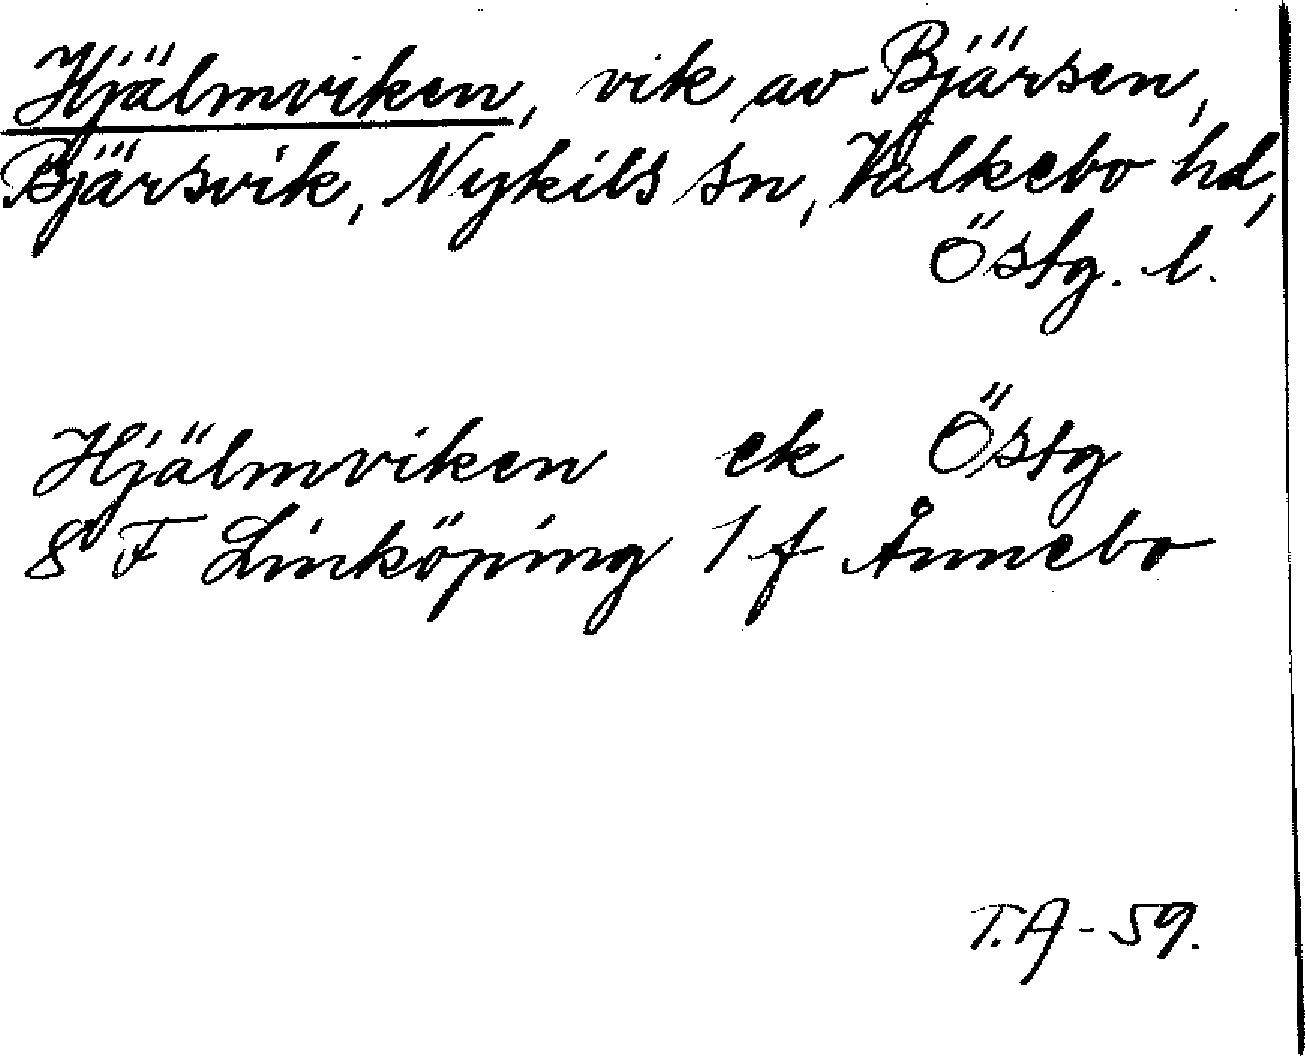 Hjälmviken, vik av Bjärsen,
Bjärsvik, Nykils sn, Valkebo hd,
Östg. l.
Hjälmviken ek Östg
8 F Linköping 1 f Ånnebo
T.A - 59.